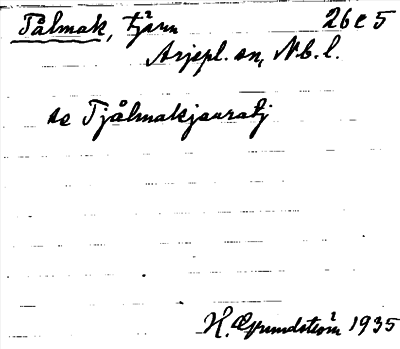 Tålmak, tjärn 26 e 5
Arjepl. sn, Nb. l.
se Tjålmakjauratj
H. Grundström 1935